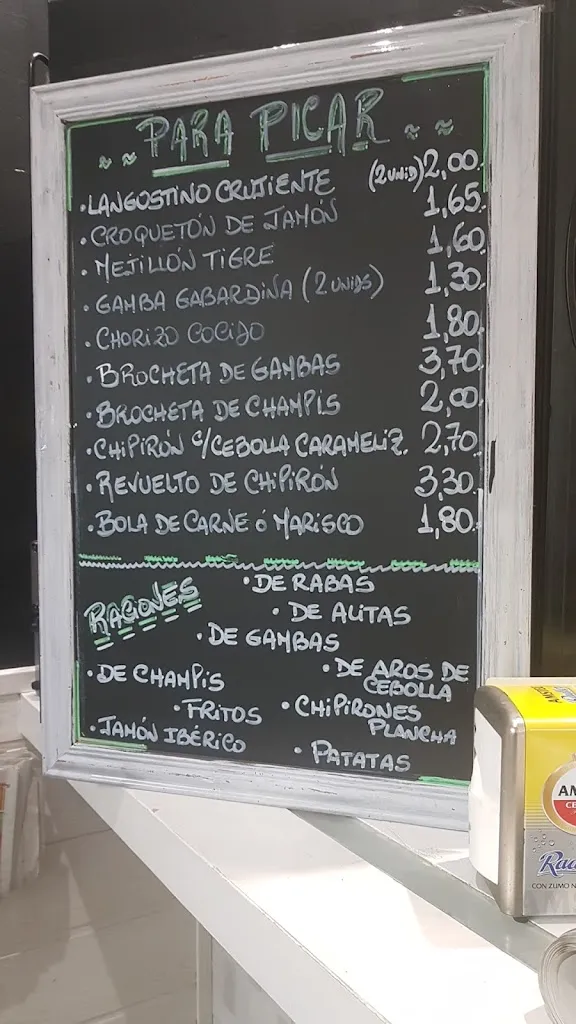 ~ ~ PARA PICAR ~ ~
• LANGOSTINO CRUJIENTE (2 UNID) 2,00.
• CROQUETÓN DE JAMÓN 1,65.
• MEJILLÓN TIGRE 1,60.
• GAMBA GABARDINA (2 UNIDS) 1,30.
• CHORIZO COCIDO 1,80.
• BROCHETA DE GAMBAS 3,70.
• BROCHETA DE CHAMPIS 2,00.
• CHIPIRÓN C/CEBOLLA CARAMELIZ. 2,70.
• REVUELTO DE CHIPIRÓN 3,30.
• BOLA DE CARNE Ó MARISCO 1,80.
RACIONES
• DE RABAS
• DE ALITAS
• DE GAMBAS
• DE CHAMPIS
• DE AROS DE
CEBOLLA
• FRITOS
• CHIPIRONES
PLANCHA
• JAMÓN IBÉRICO
• PATATAS
AM
CE
Rad
CON ZUMO N